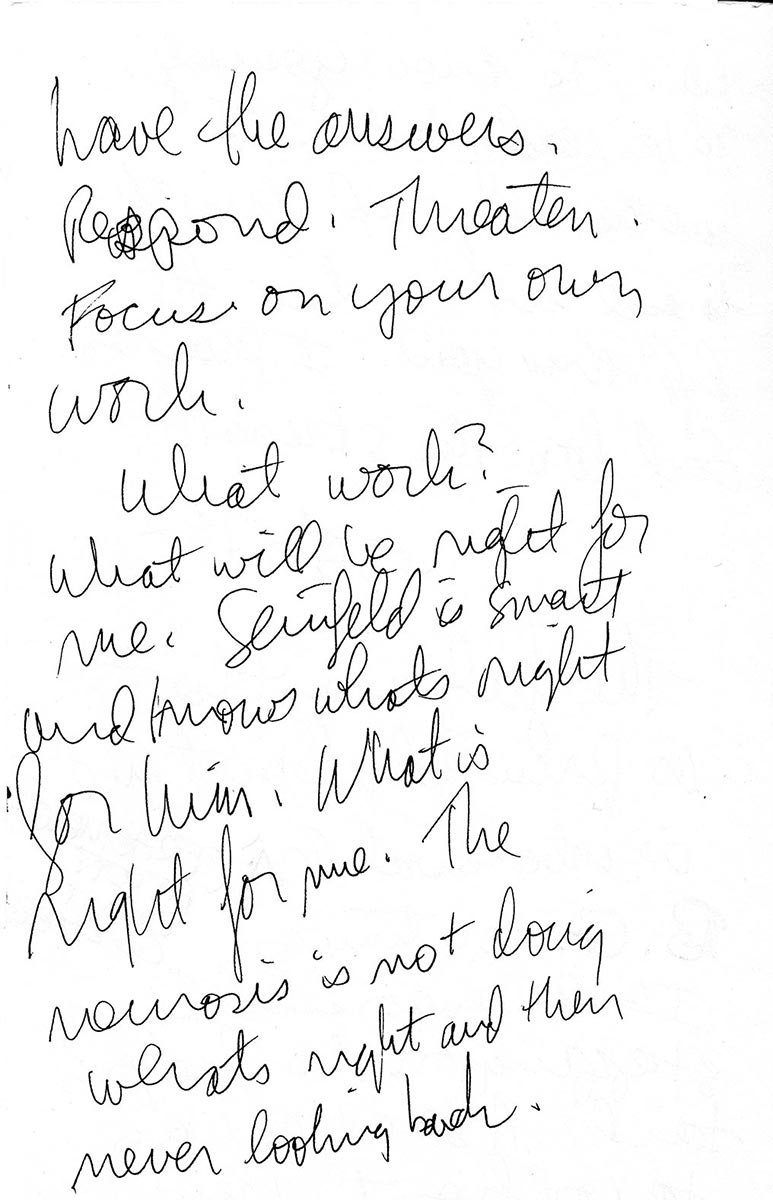 have the answers.
Respond. Threaten.
Focus on your own
work.
What work?
What will be right for
me. Seinfeld is smart
and knows whats right
for him. What is
Right for me. The
neurosis is not doing
whats right and then
never looking back.